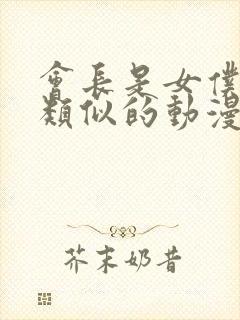 會長是女僕
類似的動漫
芥末奶昔